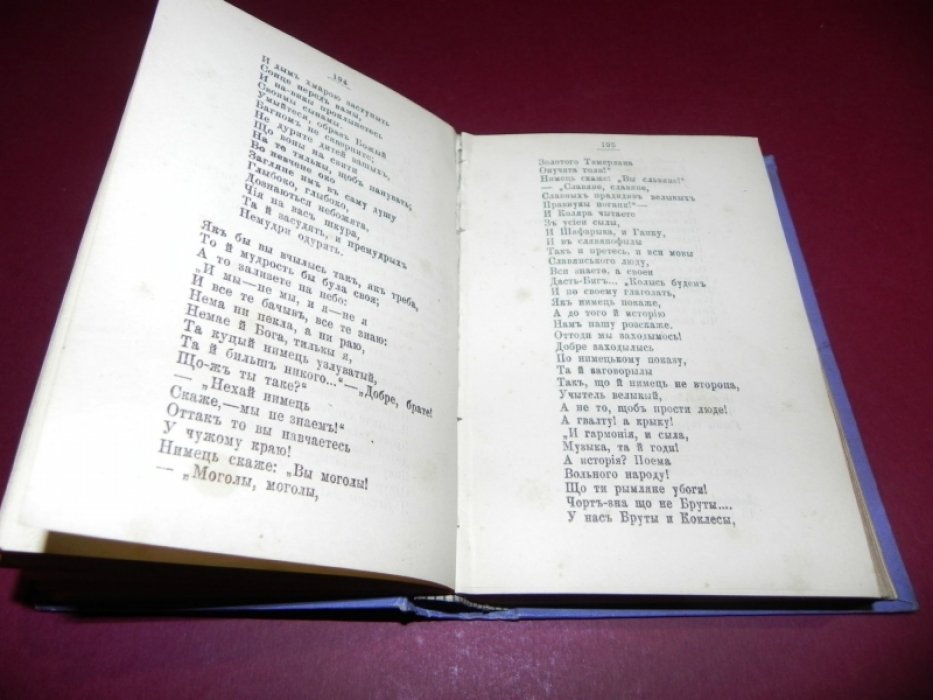 194
И дымъ хмарою заступить
Сонце передъ вамы,
И на-викы проклынетесь
Своимы сынамы.
Умыйтеся, образъ Божый
Багномъ не скверните;
Не дурите дитей вашыхъ,
Що воны на свити
На те тилькы, щобъ пануватъ;
Бо невчене око
Загляне имъ въ саму душу
Глыбоко, глыбоко,
Дознаються небожета,
Чія на васъ шкура,
Та й засудять, и премудрыхъ
Немудри одурять.
Якъ бы вы вчылысь такъ, якъ треба,
То й мудрость бы була своя;
А то зализете на небо:
„И мы—не мы, и я—не я
И все те бачывъ, все те знаю:
Нема ни пекла, а ни раю,
Немае й Бога, тилькы я,
Та куцый нимець узлуватый,
Та й бильшъ никого...“—„Добре, брате!
Що-жъ ты таке?“
— „Нехай нимець
Скаже,—мы не знаемъ!“
Оттакъ то вы навчаетесь
У чужому краю!
Нимець скаже: „Вы моголы!
— „Моголы, моголы,
195
Золотого Тамерлана
Онучята голи!“
Нимець скаже: „Вы славяне!“
— „Славяне, славяне,
Славныхъ прадидивъ великыхъ
Правнукы погани!“—
И Коляра чытаете
Зъ усіеи сылы,
И Шафарыка, и Ганку,
И въ славянофылы
Такъ и претесь, и вси мовы
Славянського люду,
Вси знаете, а своеи
Дасть-Бигъ... „Колысь будемъ
И по своему глаголать,
Якъ нимець покаже,
А до того й исторію
Намъ нашу розскаже.
Оттоди мы заходымось!
Добре заходылысь
По нимецькому показу,
Та й заговорылы
Такъ, що й нимець не второпа,
Учытель великый,
А не то, щобъ прости люде!
А гвалту! а крыку!
„И гармонія, и сыла,
Музыка, та й годи!
А исторія? Поема
Вольного народу!
Що ти рымляне убоги!
Чортъ-зна що не Бруты....
У насъ Бруты и Коклесы,